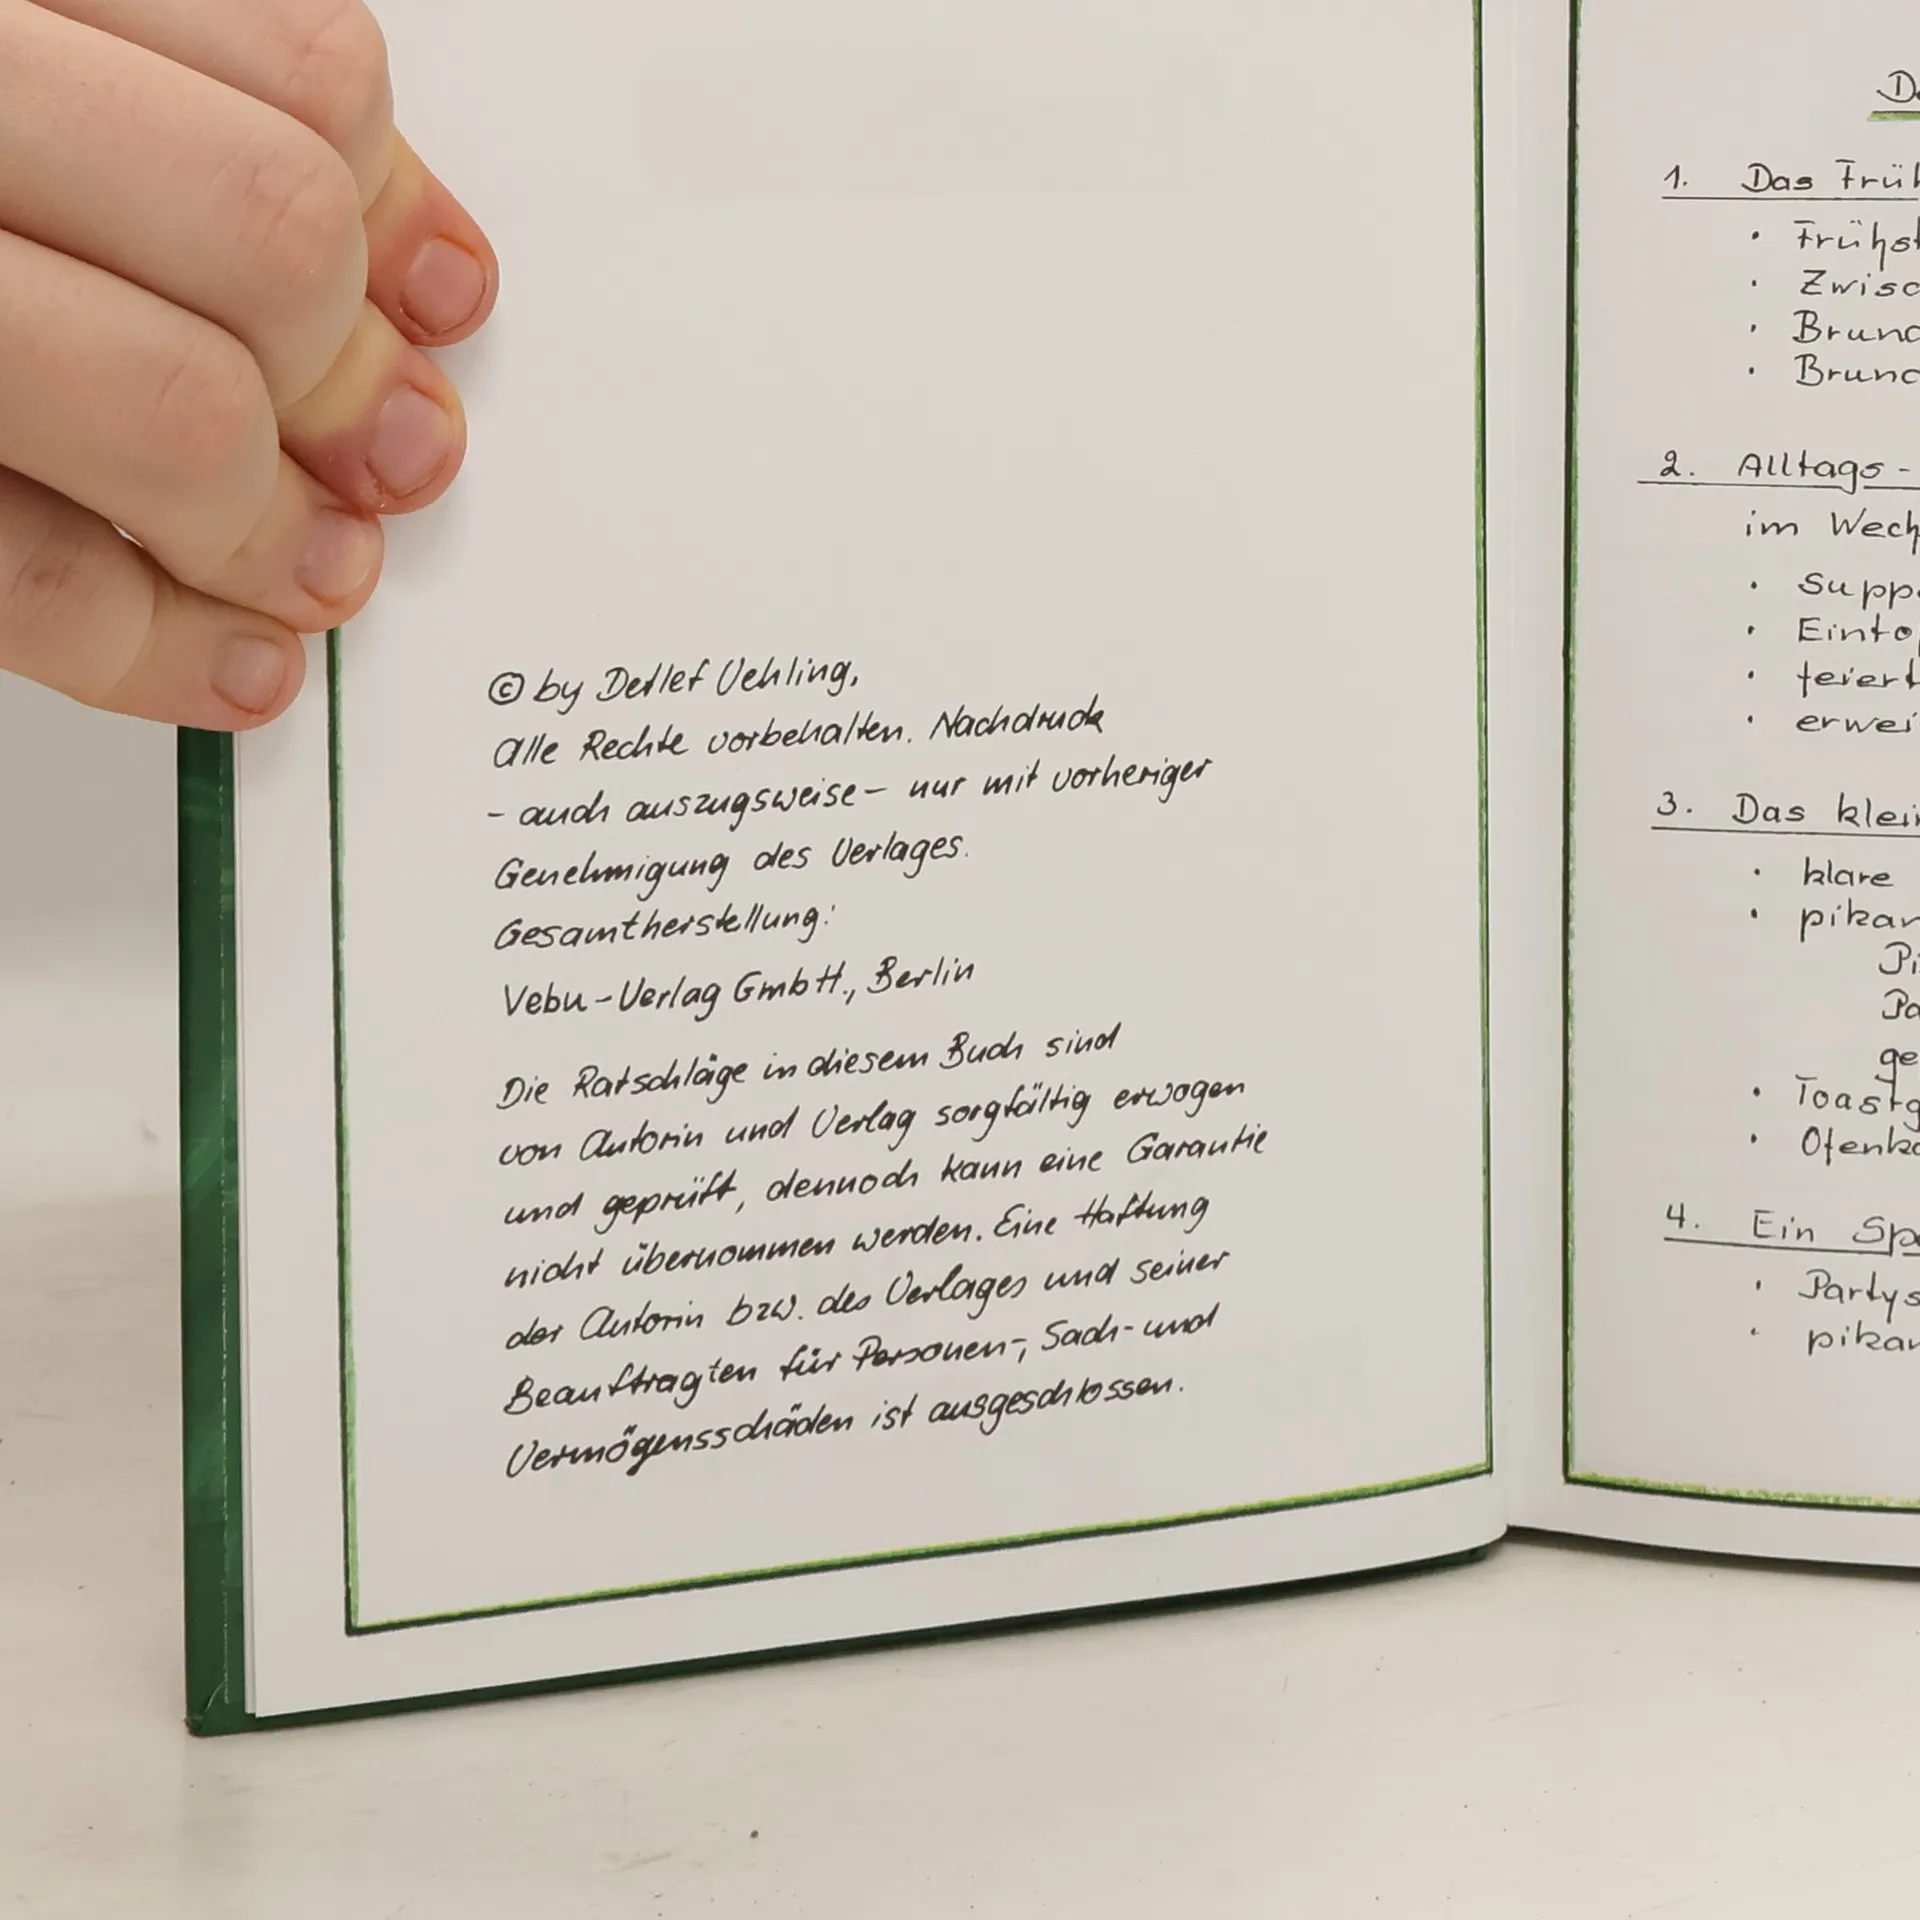 © by Detlef Uehling,
Alle Rechte vorbehalten. Nachdruck
- auch auszugsweise - nur mit vorheriger
Genehmigung des Verlages.
Gesamtherstellung:
Vebu-Verlag GmbH., Berlin
Die Ratschläge in diesem Buch sind
von Autorin und Verlag sorgfältig erwogen
und geprüft, dennoch kann eine Garantie
nicht übernommen werden. Eine Haftung
der Autorin bzw. des Verlages und seiner
Beauftragten für Personen-, Sach- und
Vermögensschäden ist ausgeschlossen.
1. Das Früh
• Frühst
• Zwisc
• Brunc
• Brunc
2. Alltags -
im Wech
• Supp
• Einto
• feiert
• erwei
3. Das klei
• klare
• pikan
Pi
Pa
ge
• Toast
• Ofenk
4. Ein Sp
• Partys
• pikan